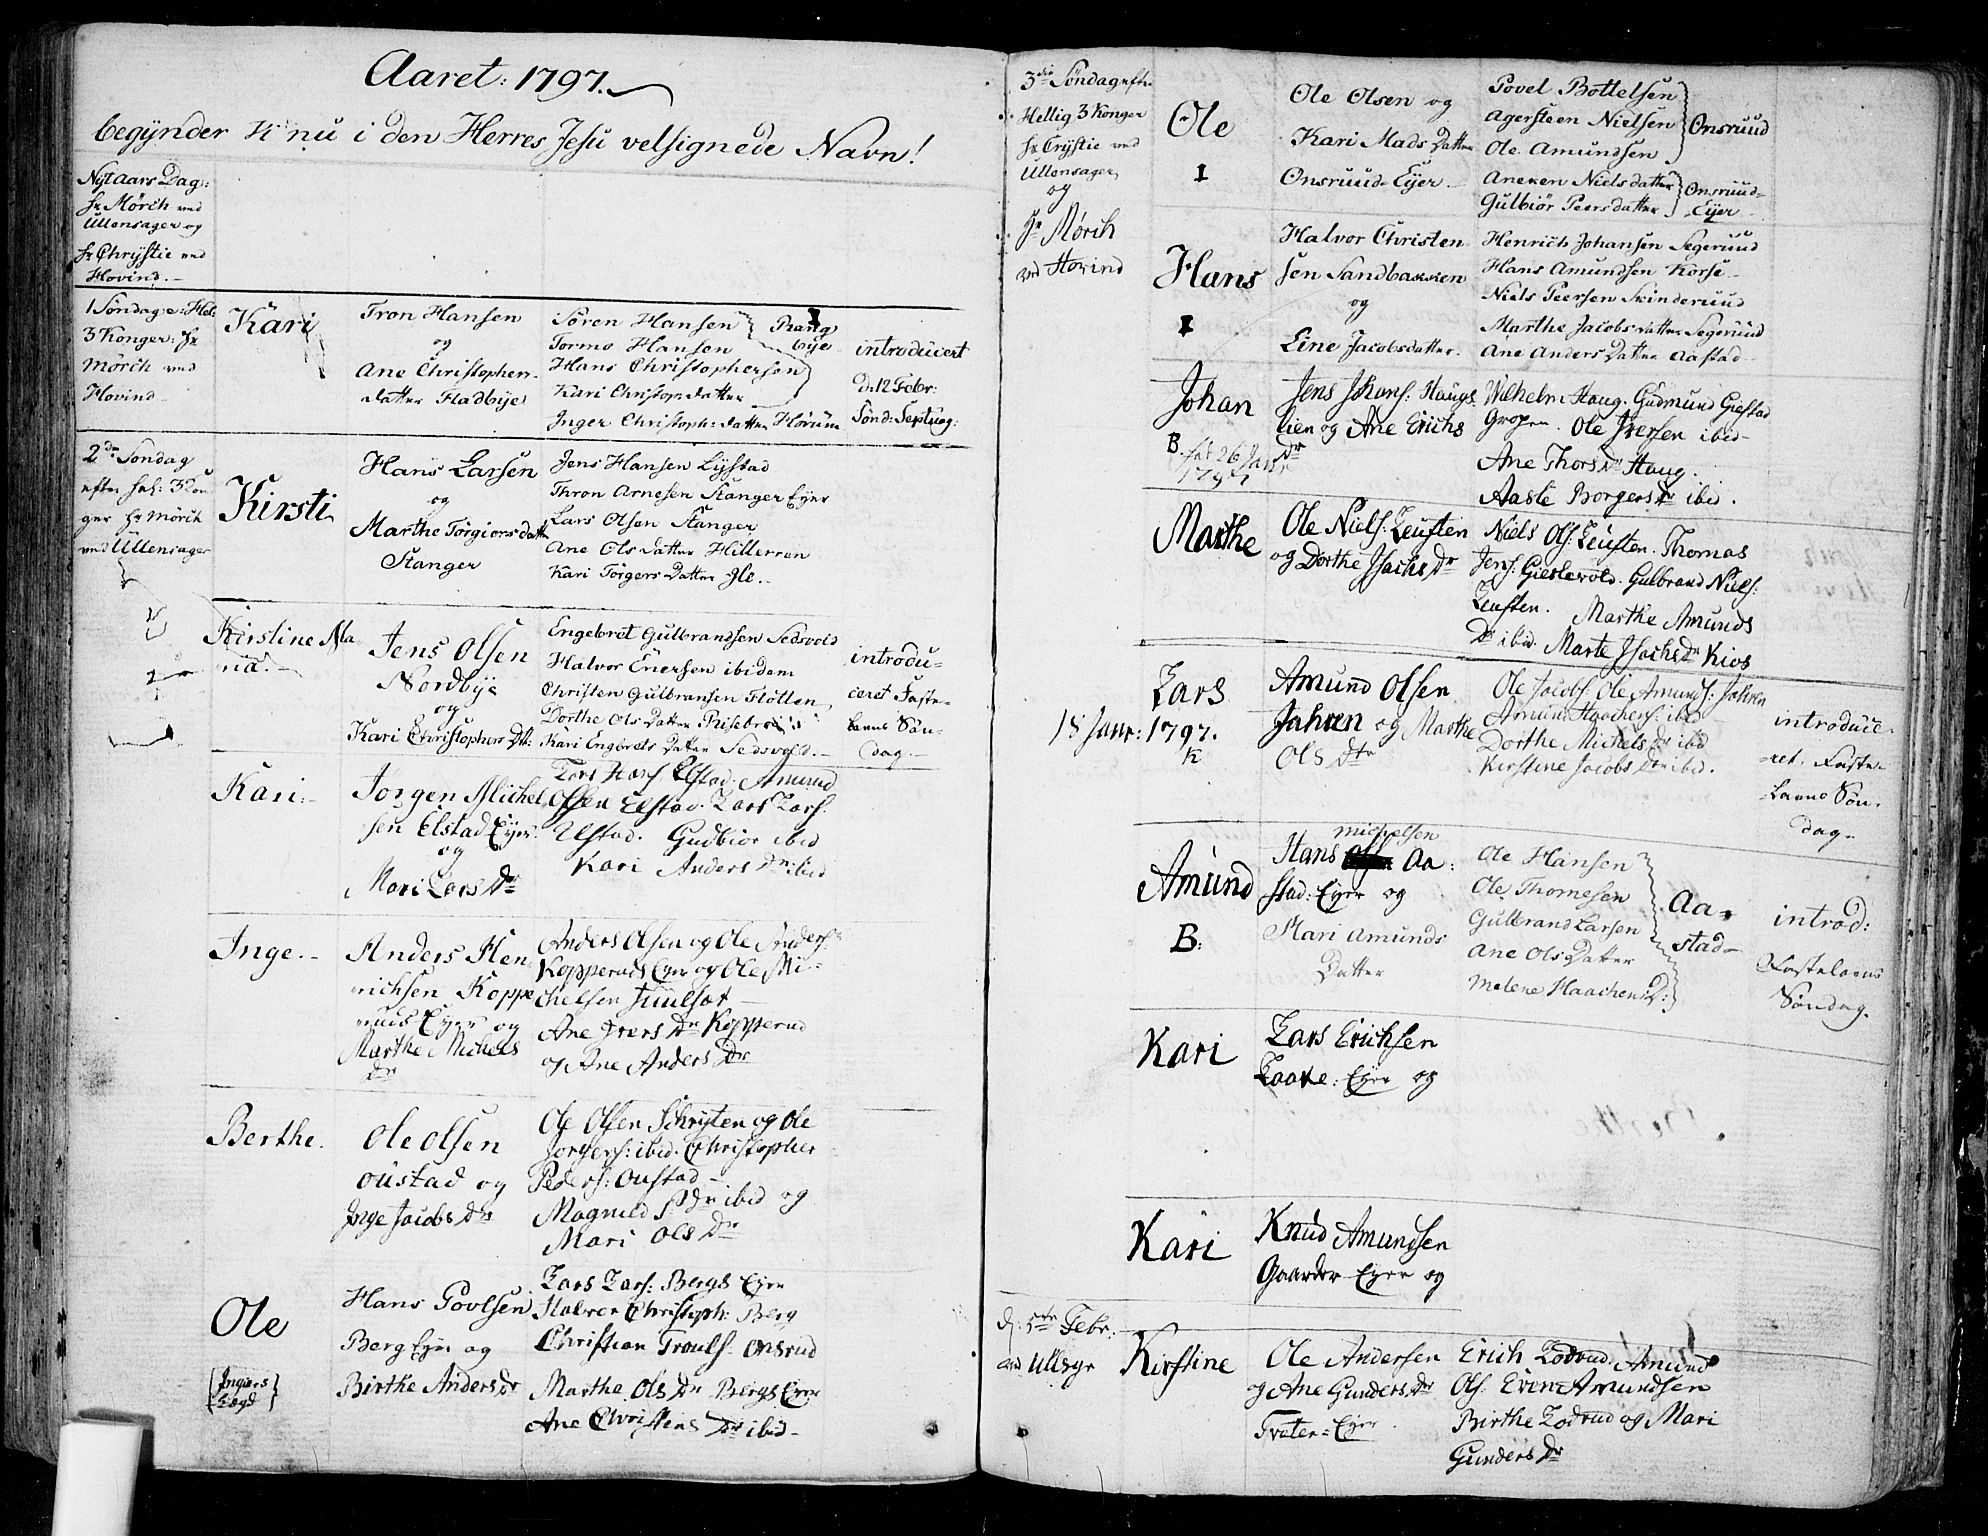 Aaret: 1797.
begynder nu i den Herres Jesu velsignede Navn!
Nytaars Dag:
Hr Mørch ved
Ullensager og
Hr Chrystie ved
Hovind.
1 Søndag e: Hel:
3 Konger: Hr
Mørch ved
Hovind
Kari
Tron Hansen
og
Ane Christophers
datter Fladbye
Søren Hansen
Tormo Hansen
Hans Christophersen
Kari Christops datter
Inger Christoph: datter Hørum
bye
introducert
d: 12 Febr:
Sønd: Septuag:
2den Søndag
efter hel: 3 Kon
ger Hr Mørch
ved Ullensager
Kirsti
Hans Larsen
og
Marthe Torgiers datter
Stanger
Jens Hansen Lystad
Thron Arnesen Stanger Eyer
Lars Olsen Stanger
Ane Ols datter Hilleren
Kari Torgers Datter Jle.
Kirstine Ma
ria.
Jens Olsen
Nordbye
og
Kari Christophers Dtr:
Engebret Gulbrandsen Sedsvold
Halvor Enersen ibidem
Christen Gulbransen Fløtten
Dorthe Ols Datter Risebro
Kari Engebrets Datter Sedsvold.
introdu-
ceret Faste-
lavns Søn-
dag.
Kari.
Jørgen Michel
sen Elstad Eyer.
og
Mari Lars Dr
Lars Hans: Elstad. Amund
Olsen Elstad. Lars Lars:
Elstad. Gudbiør ibid
Kari Anders Dr: ibid
Inge.
Anders Hen
richsen Koppe
ruds Eyer og
Marthe Michels
dr
Anders Olsen og Ole Anders:
Kopperuds Eyer og Ole Mi-
chelsen Juulsæt
Ane Ivers Dr Kopperud
og Ane Anders Dr
Berthe.
Ole Olsen
Oustad og
Inge Jacobs Dr
Ole Olsen Schryten og Ole
Jørgens: ibid. Christopher
Peders: Oustad
Magnild Dr ibid og
Mari Ols Dr
Ole
{Ingiers
Lægd}
Hans Povlsen
Berg Eyer og
Birthe Anders Dr
Lars Lars: Bergs Eyer
Halvor Christoph: Berg
Christian Trouls: Onsrud
Marthe Ols Dr Bergs Eyer
Ane Christens Dr ibid
3die Søndag efter
Hellig 3 Konger
Hr Crystie ved
Ullensager
og
Hr Mørch
ved Hovind
Ole
1
Ole Olsen og
Kari Mads Datter
Onsruud-Eyer.
Povel Bottelsen
Agersteen Nielsen
Ole Amundsen
Onsruud
Aneken Niels datter
Gulbiør Peers datter
Onsruud-
Eyer.
Hans
1
Halvor Christen
sen Sandbakken
og
Line Jacobsdatter.
Henrich Johansen Segeruud
Hans Amundsen Korse
Niels Peersen Skinderuud
Marthe Jacobs datter Segeruud
Ane Anders Datter Aastad
Johan
B. født 26 Janr
1797
Jens Johans: Haugs
lien og Ane Erichs
Dr
Wilhelm Haug. Gudmund Giestad
Gropen. Ole Iversen ibid
Ane Thors Dr Haug.
Aaste Borgers Dr ibid.
Marthe
Ole Niels: Leusten
og Dorthe Jsachs Dr
Niels Ols: Leusten. Thomas
Jens: Gieslevold. Gulbrand Niels:
Leusten. Marthe Amunds
Dr ibid. Marte Jsachs Dr Kios
Lars
15 Janr: 1797.
K
Amund Olsen
Jahren og Marthe
Ols Dtr
Ole Jacobs: Ole Amunds: Jahren
Amund Haachens: ibid
Dorthe Michels Dr ibid
Kirstine Jacobs Dtr ibid.
introduce-
ret. Faste-
lavns Søn-
dag.
Amund
B:
michelsen
Hans Aa:
stad: Eyer og
Mari Amunds
Datter
Ole Hansen
Ole Thomesen
Gulbrand Larsen
Ane Ols Datter
Melene Haachens D:
Aa-
stad
introd:
Fastelavns
Søndag.
Kari
Lars Erichsen
Laake: Eyer og
Kari
Knud Amundsen
Gaarder Eyer og
d: 5te Febr:
ved Ullsgr
Kirstine
Ole Andersen
og Ane Gunders Dr
Træter-Eyer.
Erich Lodrud. Amund
Ols: Even Amundsen
Birthe Lodrud og Mari
Gunders Dr